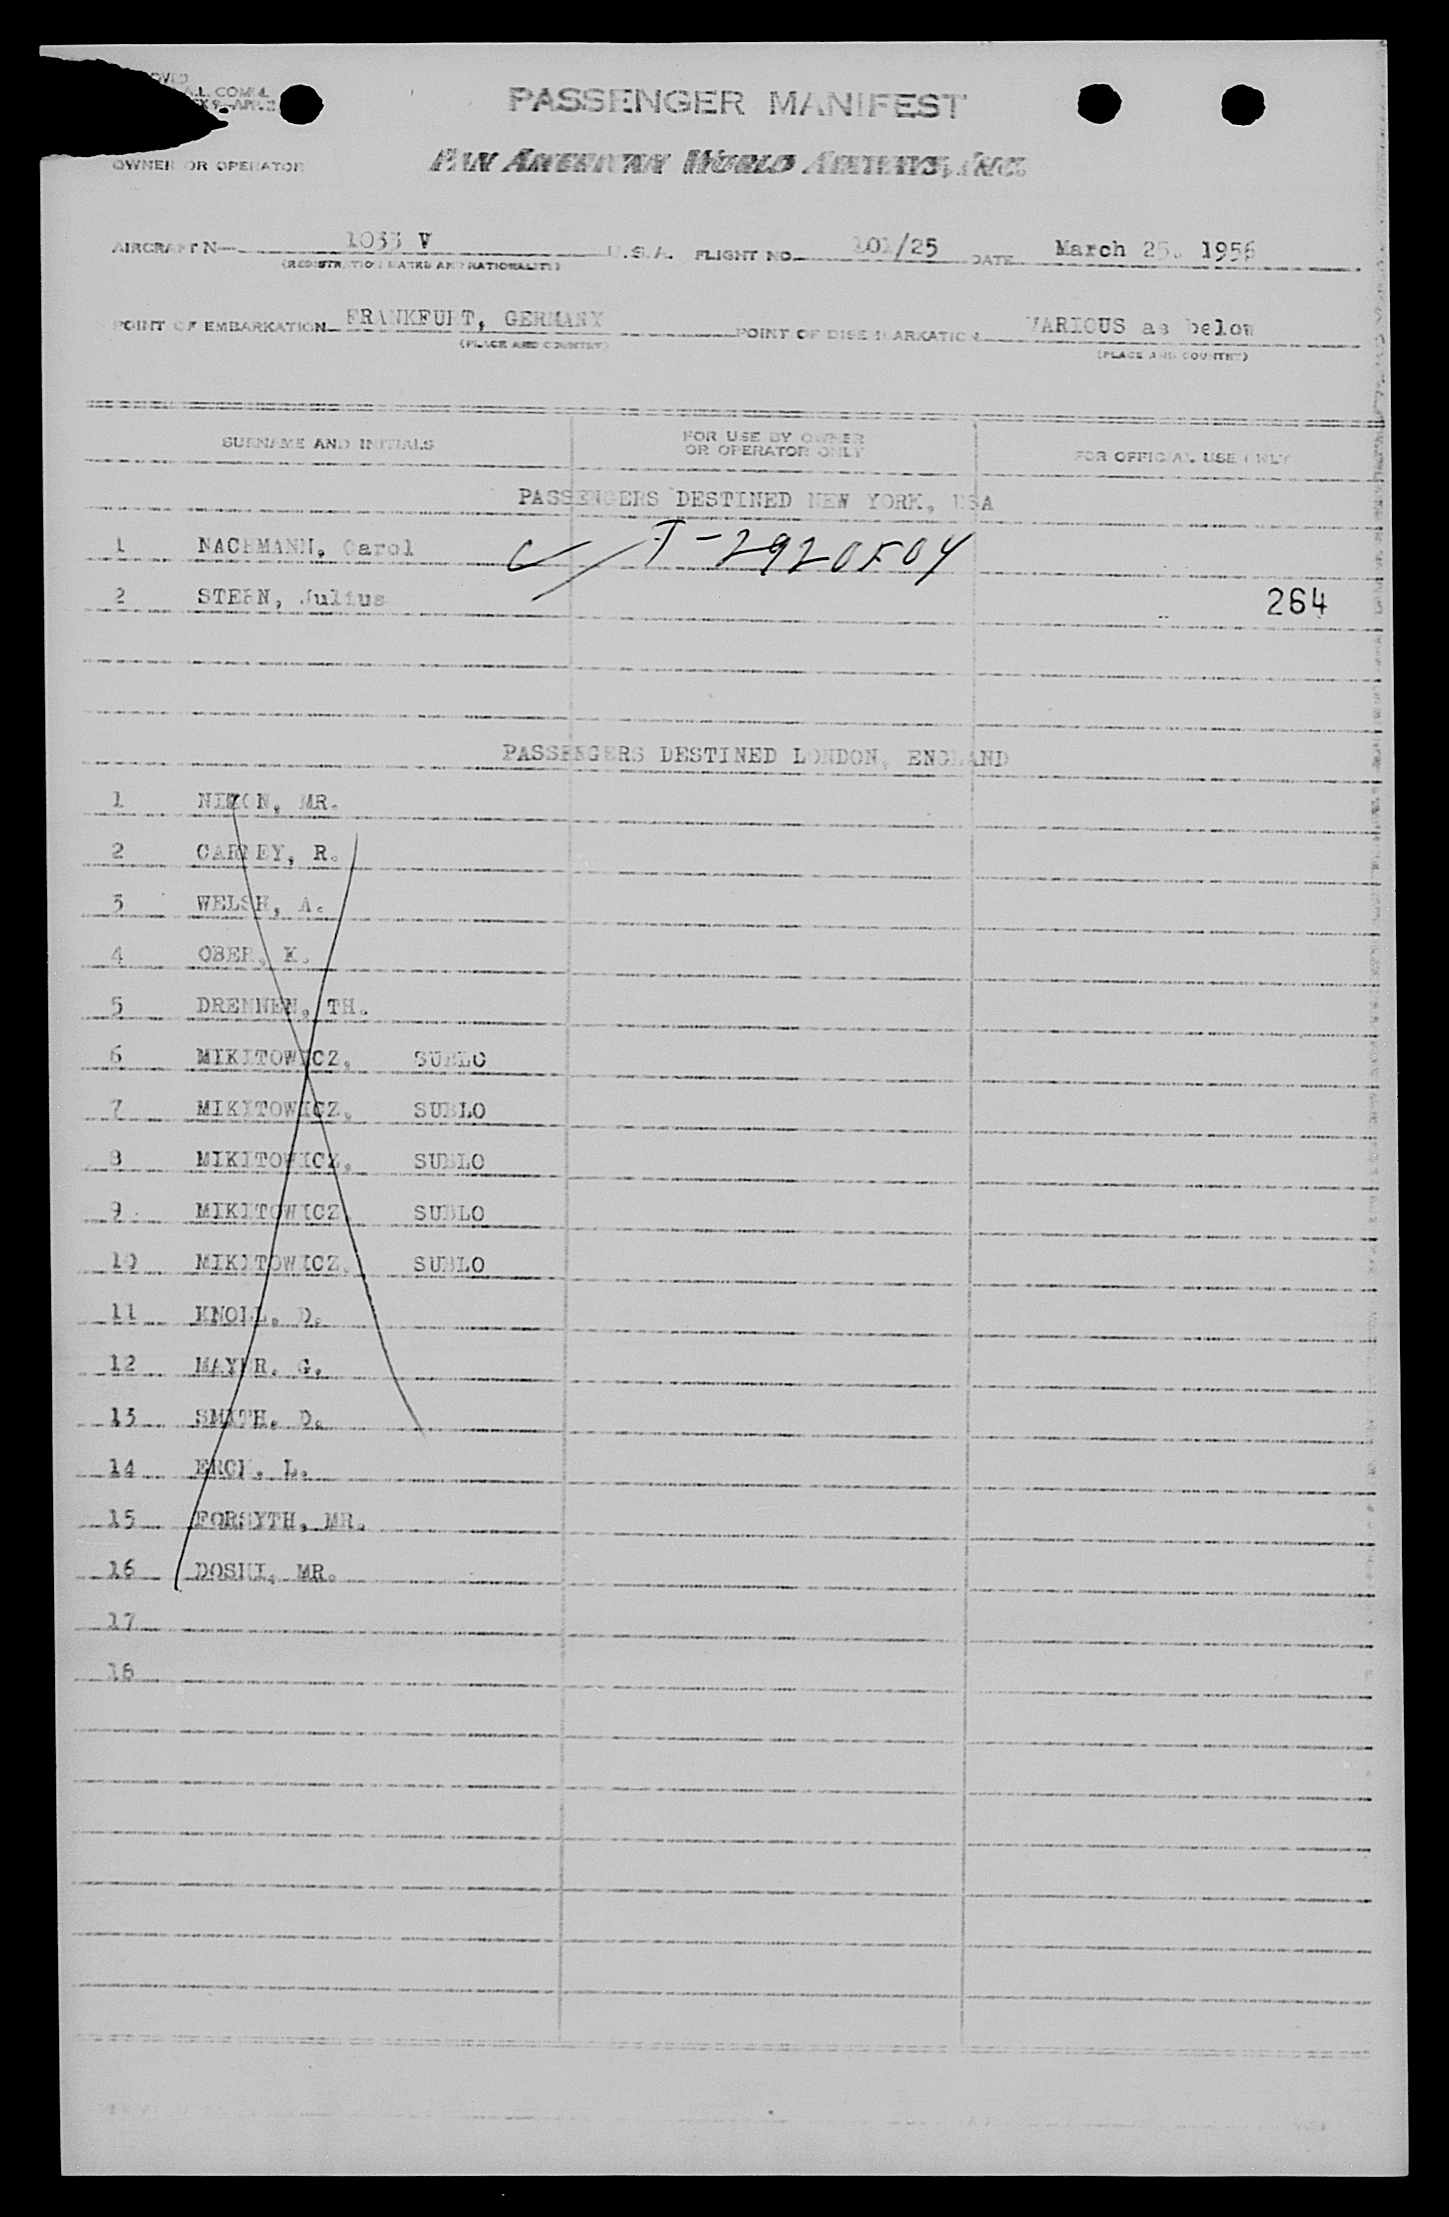 PASSENGER MANIFEST
OWNER OR OPERATOR PAN AMERICAN WORLD AIRWAYS, INC.
AIRCRAFT N 1033 V U.S.A. FLIGHT NO. 101/25 DATE March 25. 1956
(REGISTRATION MARKS AND NATIONALITY)
POINT OF EMBARKATION FRANKFURT, GERMANY POINT OF DISEMBARKATION VARIOUS as below
(PLACE AND COUNTRY) (PLACE AND COUNTRY)
SURNAME AND INITIALS FOR USE BY OWNER OR OPERATOR ONLY FOR OFFICIAL USE ONLY
PASSENGERS DESTINED NEW YORK, USA
1 NACHMANN, Carol
2 STERN, Julius 264
PASSENGERS DESTINED LONDON, ENGLAND
1 NIXON, MR.
2 CARNEY, R.
3 WELSH, A.
4 OBER, K.
5 DRENNEN, TH.
6 MIKITOWICZ, SUBLO
7 MIKITOWICZ, SUBLO
8 MIKITOWICZ, SUBLO
9 MIKITOWICZ, SUBLO
10 MIKITOWICZ, SUBLO
11 KNOLL, D.
12 MAYER, G.
13 SMITH, D.
14 L.
15 FORSYTH, MR.
16 DOSHI, MR.
17
18